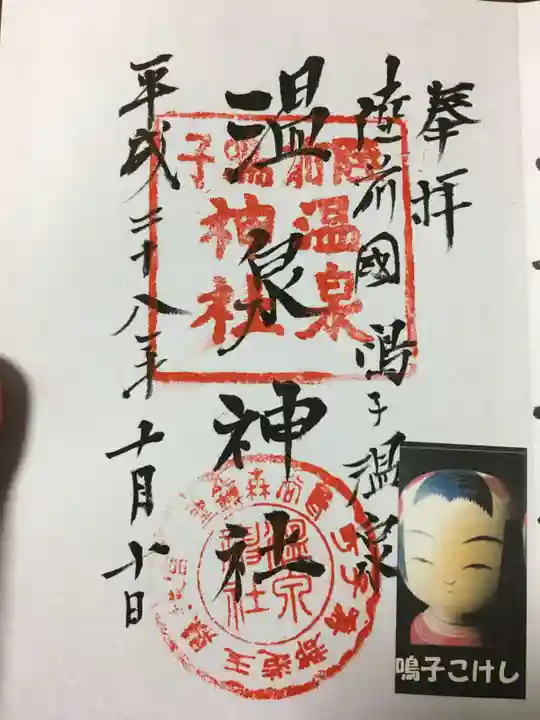 奉拝
陸前國 鳴子温泉
温泉神社
平成二十八年十月十日
陸前鳴子
温泉
神社
温泉
神社
鳴子こけし